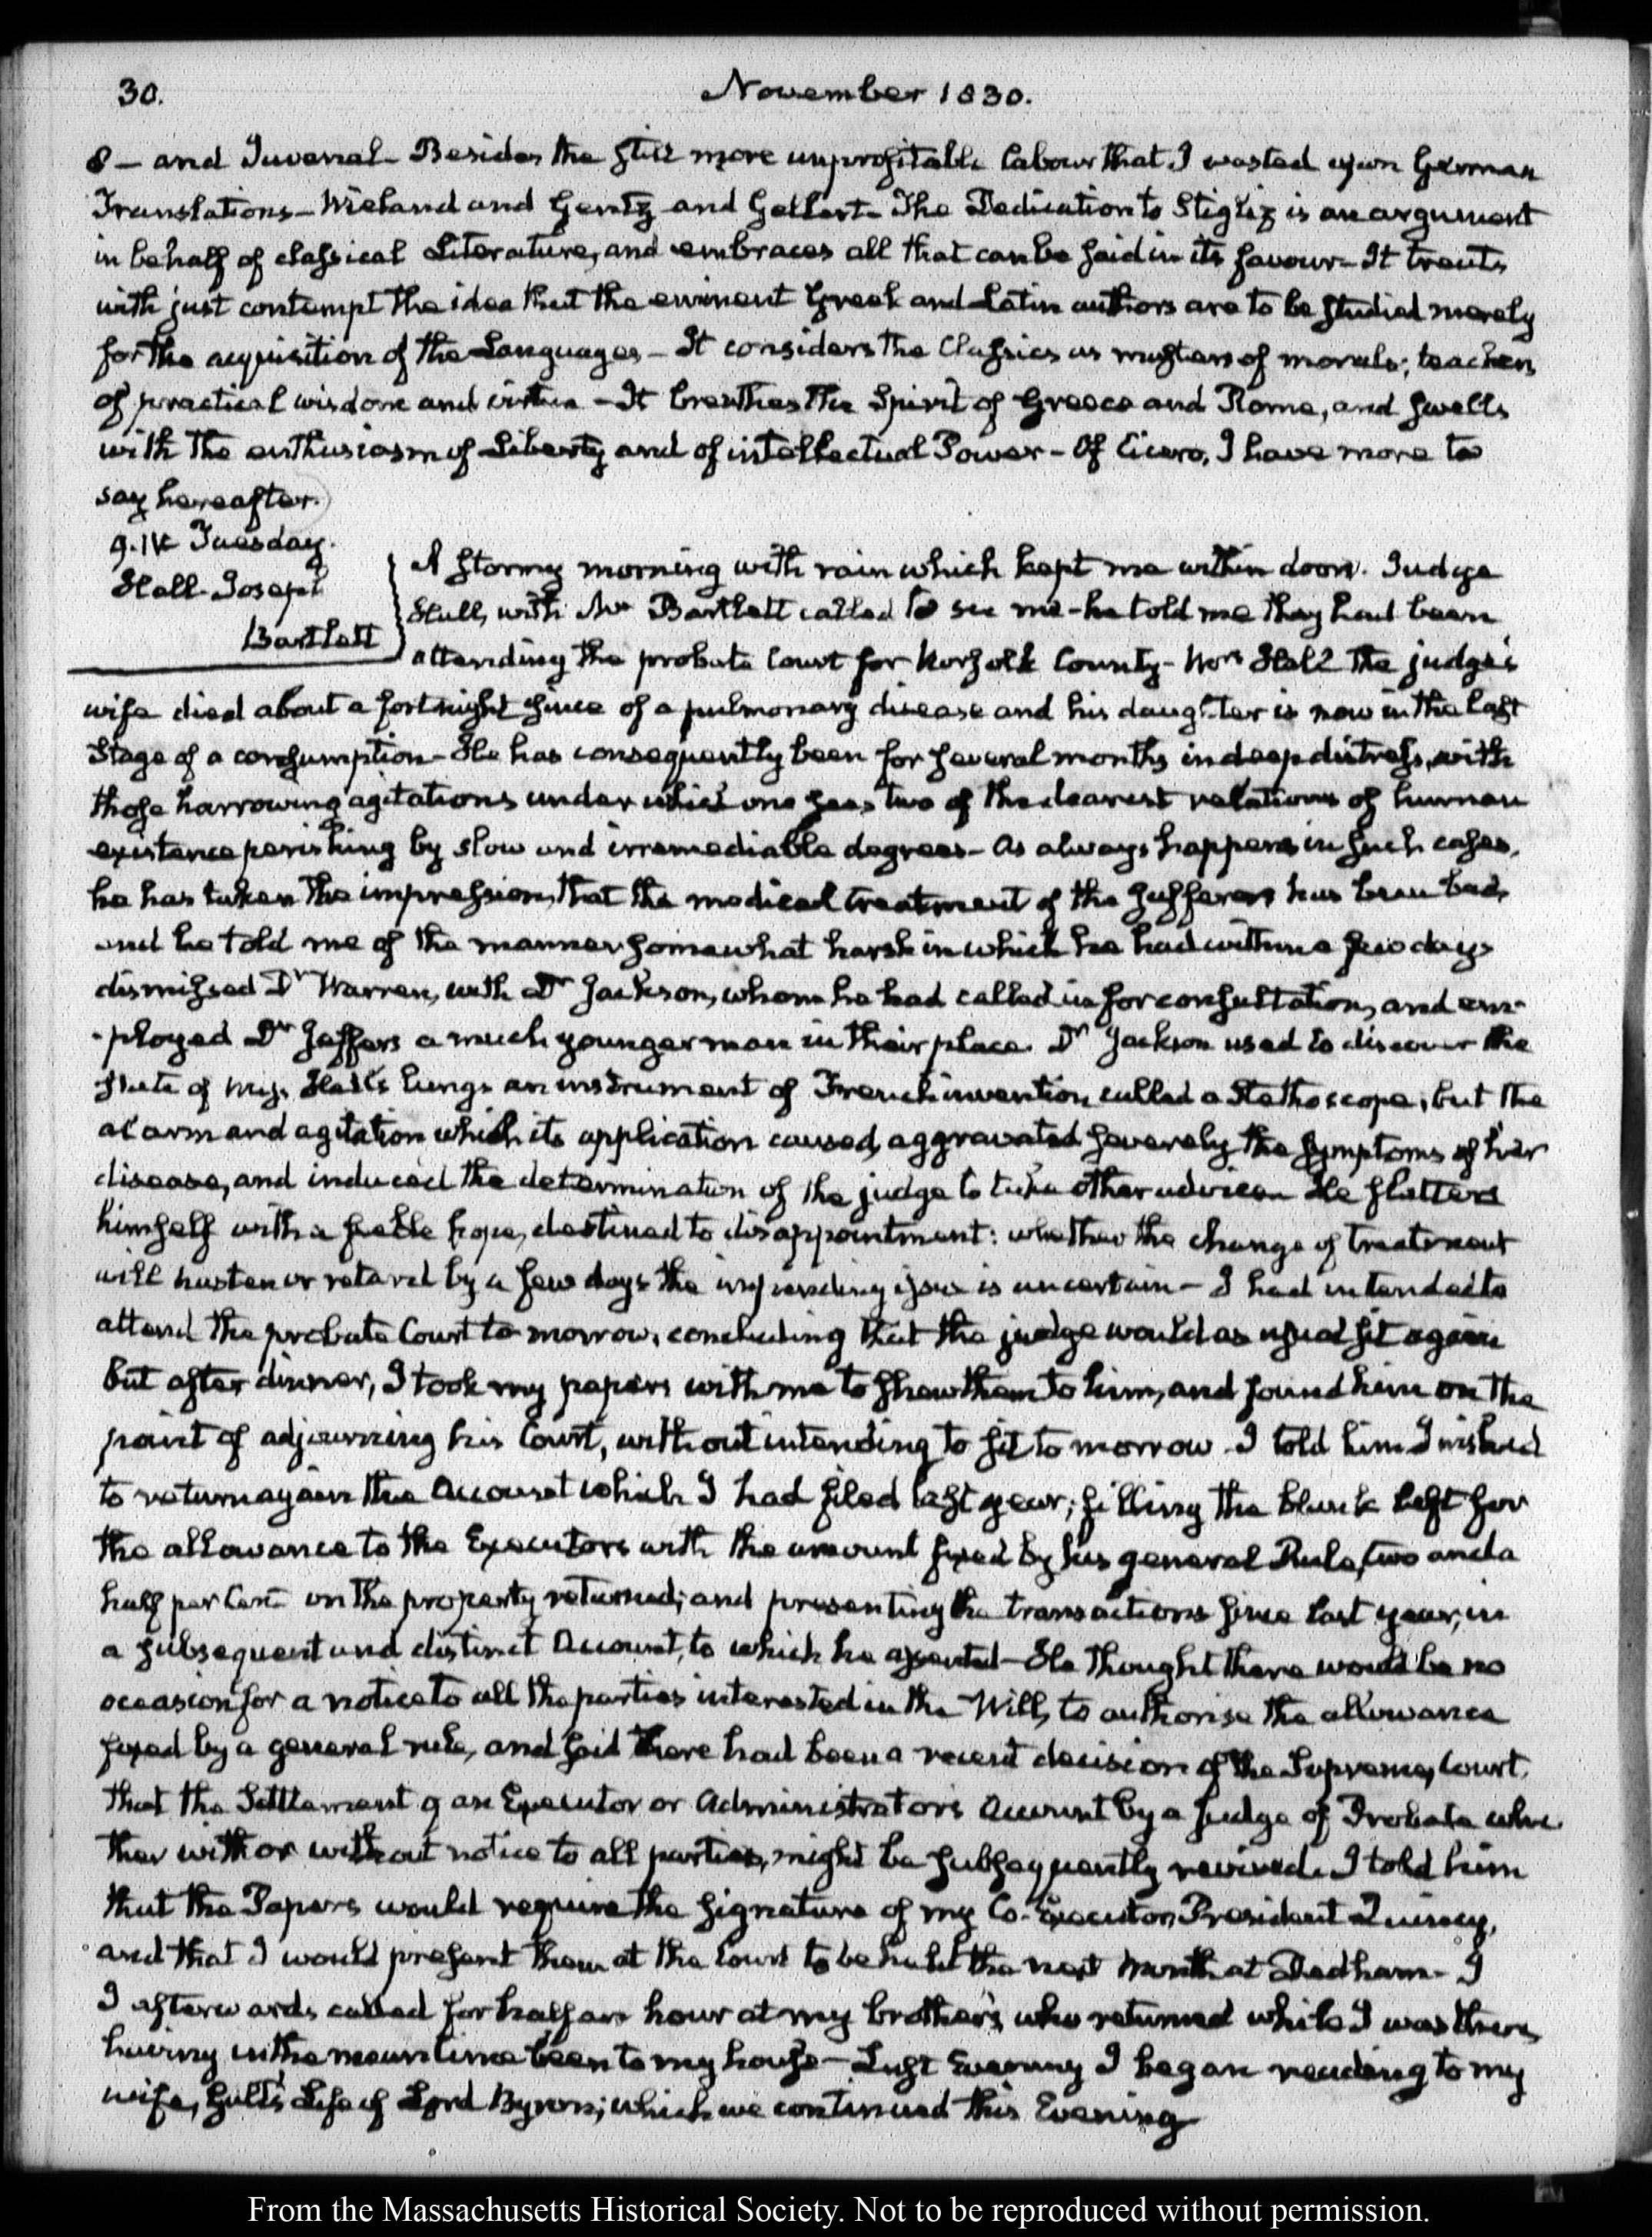 30.
November 1830.
8 — and Juvenal — Besides the still more unprofitable labour that I wasted upon German
Translations — Wieland and Gentz and Gellert — The Dedication to Stiglitz is an argument
in behalf of classical Literature, and embraces all that can be said in its favour — It treats
with just contempt the idea that the eminent Greek and Latin authors are to be studied merely
for the acquisition of the Languages — It considers the Classics as masters of morals; teachers
of practical wisdom and virtue — It breathes the Spirit of Greece and Rome, and swells
with the enthusiasm of Liberty and of intellectual Power — Of Cicero, I have more to
say hereafter.
9. Tuesday.
Hall. Joseph
Bartlett
A stormy morning with rain which kept me within doors. Judge
Hall, with Mr Bartlett called to see me — he told me they had been
attending the probate Court for Norfolk County — Mrs Hall the judge's
wife died about a fortnight since of a pulmonary disease and his daughter is now in the last
Stage of a consumption — He has consequently been for several months in deep distress, with
those harrowing agitations under which one sees two of the dearest relations of human
existence perishing by slow and irremediable degrees — As always happens in such cases,
he has taken the impression, that the medical treatment of the sufferers has been bad,
and he told me of the manner somewhat harsh in which he had within a few days
dismissed Dr Warren, with Dr Jackson, whom he had called in for consultation, and em-
-ployed Dr Jeffers a much younger man in their place. Dr Jackson used to discover the
state of Miss Hall's lungs an instrument of French invention, called a Stethoscope, but the
alarm and agitation which its application caused, aggravated severely the symptoms of her
disease, and induced the determination of the judge to take other advice. He flatters
himself with a feeble hope, destined to disappointment: whether the change of treatment
will hasten or retard by a few days the impending issue is uncertain — I had intended to
attend the probate Court to-morrow, concluding that the judge would as usual sit again
but after dinner, I took my papers with me to shew them to him, and found him on the
point of adjourning his Court, without intending to sit to morrow. I told him I wished
to return again the Account which I had filed last year; filling the blank left for
the allowance to the Executors with the amount fixed by his general Rule, two and a
half per Cent on the property returned; and presenting the transactions since last year, in
a subsequent and distinct Account, to which he assented — He thought there would be no
occasion for a notice to all the parties interested in the Will, to authorise the allowance
fixed by a general rule, and said there had been a recent decision of the Supreme Court,
that the Settlement of an Executor or Administrators Account by a Judge of Probate whe-
ther with or without notice to all parties, might be subsequently revived. I told him
that the Papers would require the signature of my Co-Executor, President Quincy,
and that I would present them at the Court to be held the next month at Dedham — I
I afterwards called for half an hour at my brother's who returned while I was there,
having in the meantime been to my house — Last Evening I began reading to my
wife, Galt's Life of Lord Byron; which we continued this Evening
From the Massachusetts Historical Society. Not to be reproduced without permission.